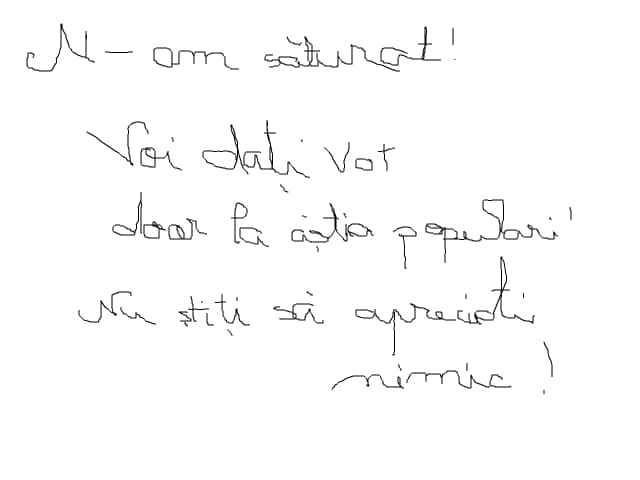 N-am săturat!
Voi dați vot
doar la ăștia populari!
Nu știți să apreciați
nimic!